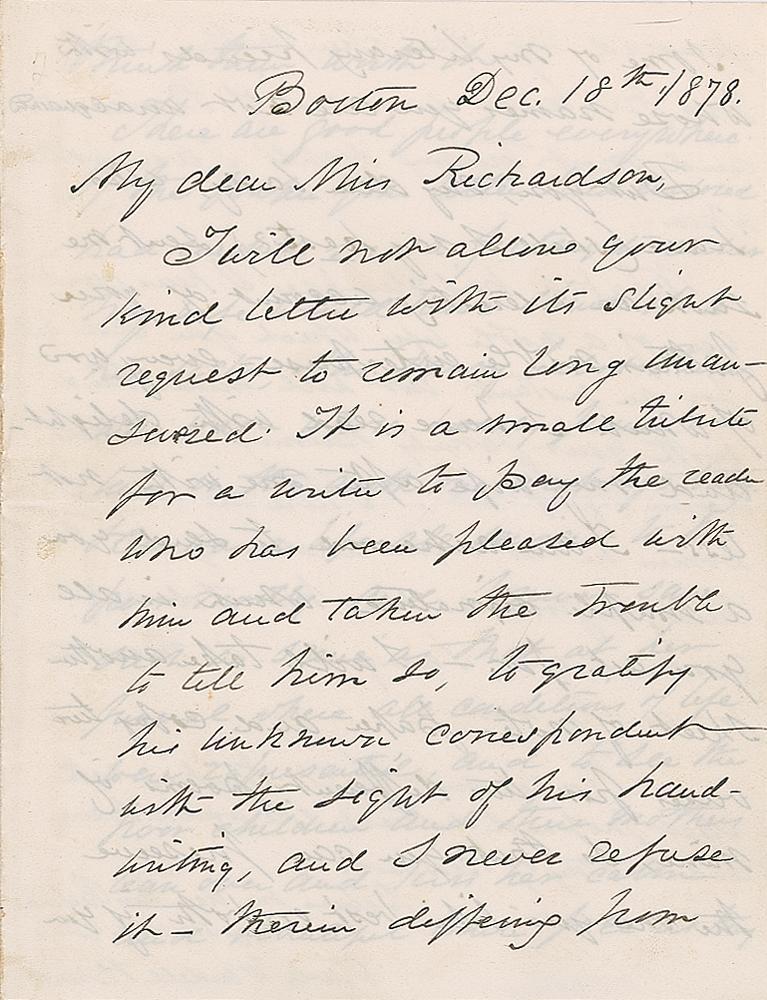 Boston Dec. 18th, 1878.
My dear Miss Richardson,
I will not allow your
kind letter with its slight
request to remain long unan-
swered. It is a small tribute
for a writer to pay the reader
who has been pleased with
him and taken the trouble
to tell him so, to gratify
his unknown correspondent
with the sight of his hand-
writing, and I never refuse
it – therein differing from